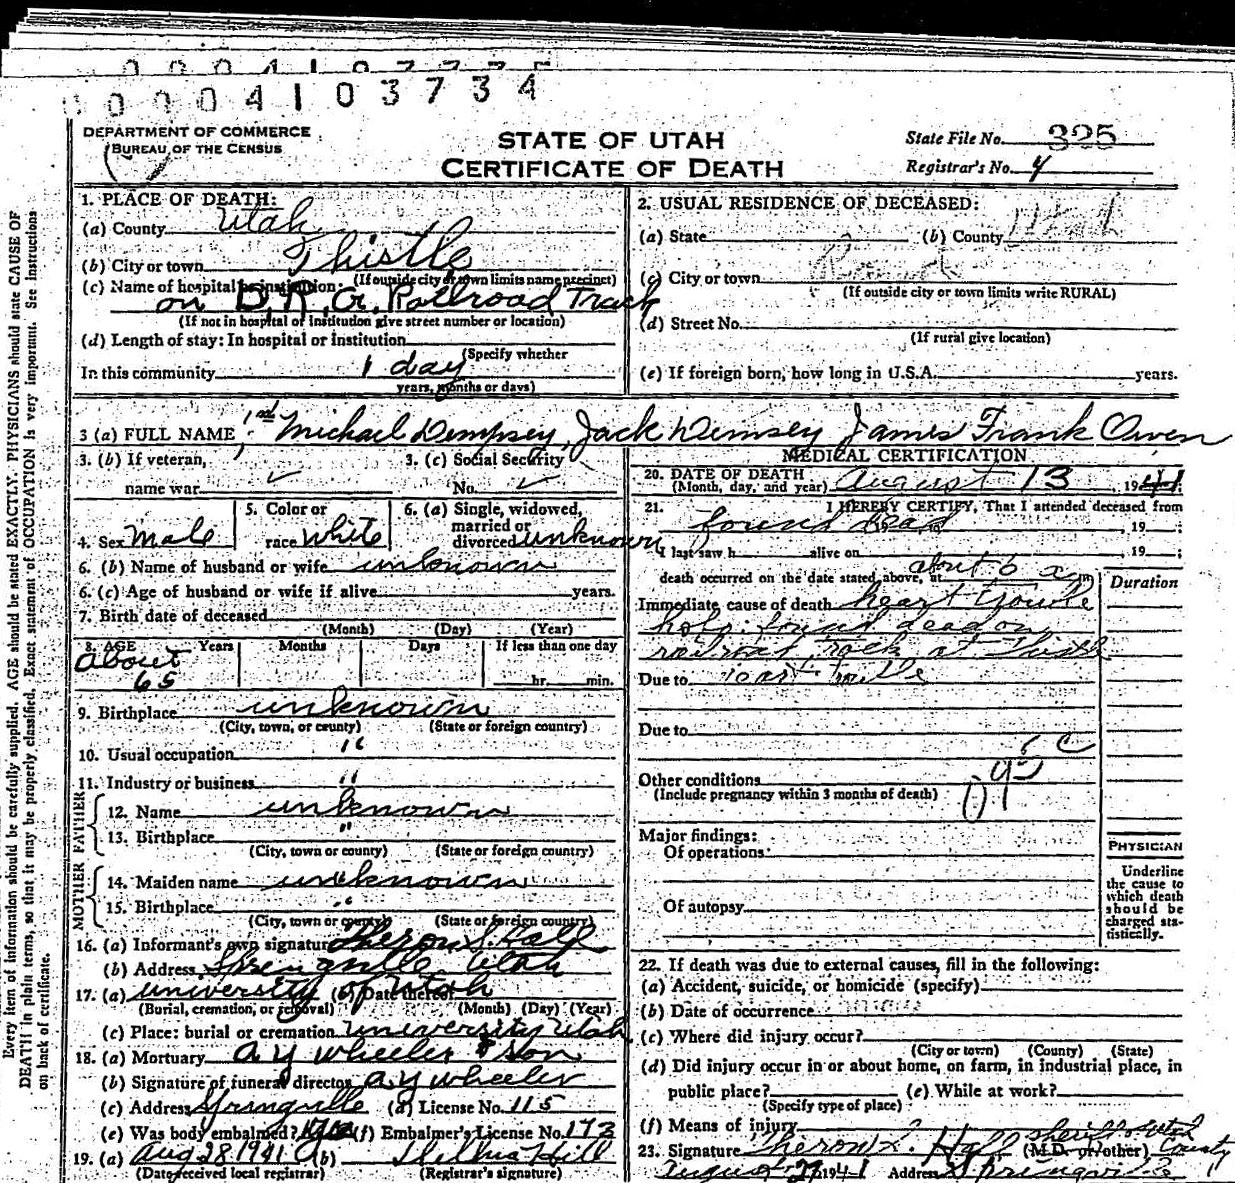 0004103734
DEPARTMENT OF COMMERCE
BUREAU OF THE CENSUS
STATE OF UTAH
CERTIFICATE OF DEATH
State File No. 325
Registrar's No. 4
Every item of information should be carefully supplied. AGE should be stated EXACTLY. PHYSICIANS should state CAUSE OF
DEATH in plain terms, so that it may be properly classified. Exact statement of OCCUPATION is very important. See Instructions
on back of certificate.
1. PLACE OF DEATH:
(a) County Utah
(b) City or town Thistle
(If outside city or town limits name precinct)
(c) Name of hospital or institution:
on D.R.G. Railroad Track
(If not in hospital or institution give street number or location)
(d) Length of stay: In hospital or institution
(Specify whether
In this community 1 day
years, months or days)
2. USUAL RESIDENCE OF DECEASED:
(a) State (b) County
(c) City or town
(If outside city or town limits write RURAL)
(d) Street No.
(If rural give location)
(e) If foreign born, how long in U.S.A. years.
3 (a) FULL NAME Michael Dempsey, Jack Demsey James Frank Owen
3. (b) If veteran,
name war
3. (c) Social Security
No.
4. Sex Male
5. Color or
race White
6. (a) Single, widowed,
married or
divorced unknown
6. (b) Name of husband or wife unknown
6. (c) Age of husband or wife if alive years.
7. Birth date of deceased
(Month) (Day) (Year)
8. AGE Years Months Days If less than one day
About
65
hr. min.
9. Birthplace unknown
(City, town, or county) (State or foreign country)
10. Usual occupation "
11. Industry or business "
FATHER
12. Name unknown
13. Birthplace "
(City, town or county) (State or foreign country)
MOTHER
14. Maiden name unknown
15. Birthplace "
(City, town or county) (State or foreign country)
16. (a) Informant's own signature Theron S. Hall
(b) Address Springville Utah
17. (a) university of Utah (b) Date thereof
(Burial, cremation, or removal) (Month) (Day) (Year)
(c) Place: burial or cremation university Utah
18. (a) Mortuary A Y Wheeler & Son
(b) Signature of funeral director A Y Wheeler
(c) Address Springville (d) License No. 115
(e) Was body embalmed? (f) Embalmer's License No. 173
19. (a) Aug 28 1941 (b)
(Date received local registrar) (Registrar's signature)
MEDICAL CERTIFICATION
20. DATE OF DEATH
(Month, day, and year) August 13, 1941
21. I HEREBY CERTIFY, That I attended deceased from
found dead, 19 ;
I last saw h alive on , 19 ;
death occurred on the date stated above, at about 6 m
Duration
Immediate cause of death heart trouble
found dead on
railroad track at Thistle
Due to
Due to
Other conditions
(Include pregnancy within 3 months of death)
Major findings:
Of operations
Of autopsy
PHYSICIAN
Underline
the cause to
which death
should be
charged sta-
tistically.
22. If death was due to external causes, fill in the following:
(a) Accident, suicide, or homicide (specify)
(b) Date of occurrence
(c) Where did injury occur?
(City or town) (County) (State)
(d) Did injury occur in or about home, on farm, in industrial place, in
public place? (e) While at work?
(Specify type of place)
(f) Means of injury
23. Signature Theron S. Hall (M.D. or other) Sheriff Utah County
August 27 1941 Address Springville